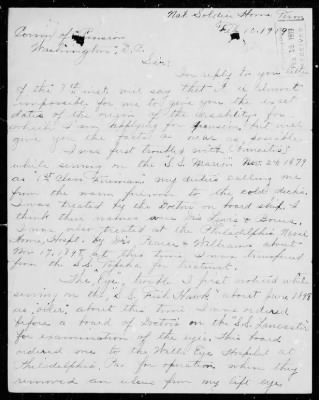 Nat. Soldier Home Tenn
Feb 10, 1919
Comm of Pension
Washington, D.C.
Sir:
In reply to your letter
of the 7th inst. will say that it is almost
impossible for me to give you the exact
dates of the origin of the disability for
which I am applying for pension but will
give you the facts as near as possible
I was first troubled with
while serving on the S.S. Nov. 24, 1897
as "2d Class Fireman" my duties calling me
from the warm fire room to the cold decks.
I was treated by the Doctors on board ship. I
think their names were Drs &
I was also treated at the Philadelphia Naval
Home, Hospl. by Drs & Williams about
Nov 17, 1898, at this time I was transferred
from the S.S. for treatment.
The "Eye" trouble I first noticed while
serving on the S.S. "Fish Hawk" about June 1898
as oiler, about this time I was ordered
before a board of Doctors on the "S.S. Lancaster"
for examination of the eyes. This board
ordered me to the Wills Eye Hospital at
Philadelphia, Pa. for operation when they
removed an ulcer from my left eye